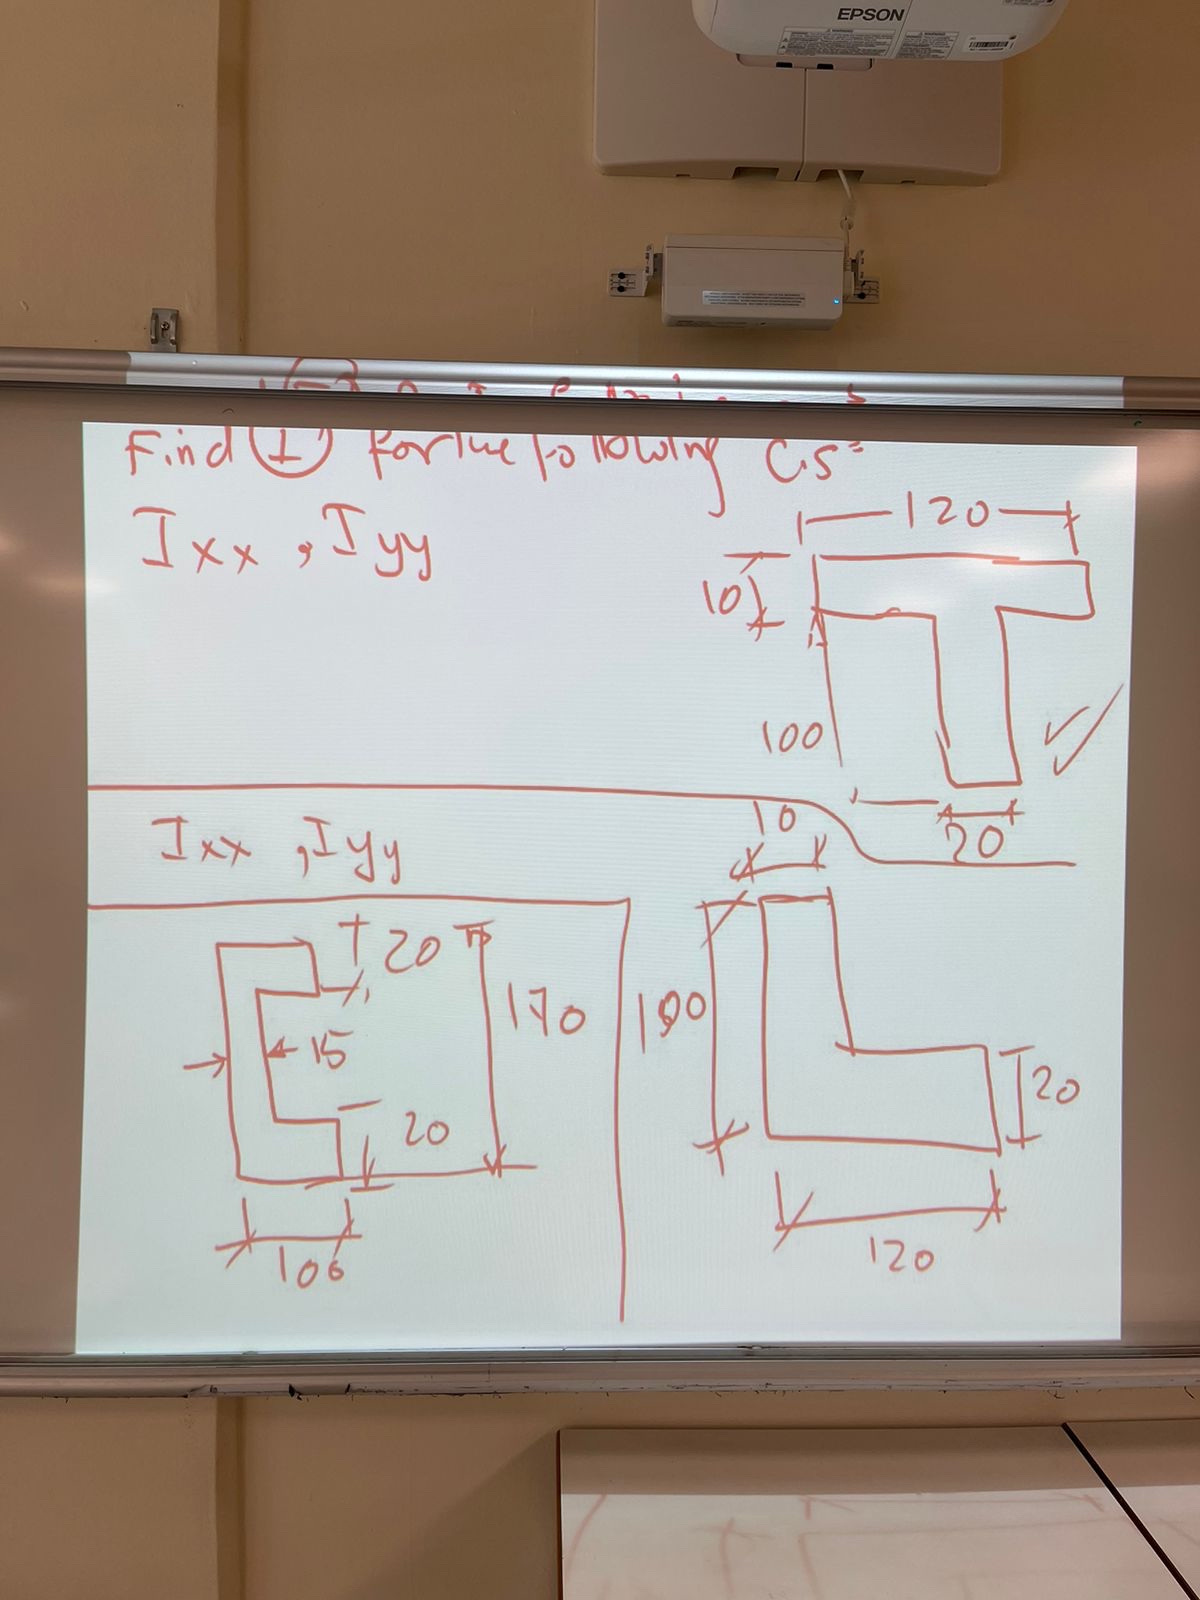 EPSON
Find I for the following C.S
Ixx , Iyy
120
10
100
20
Ixx , Iyy
20
170
15
20
100
10
100
20
120